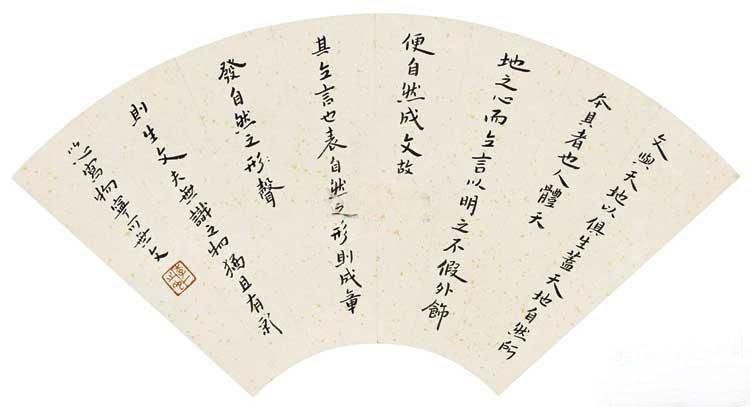 文與天地以俱生蓋天地自然所
本具者也人體天
地之心而立言以明之不假外飾
便自然成文故
其立言也表自然之形則成章
發自然之形聲
則生文夫無識之物猶且有彩
心寫物寧可無文